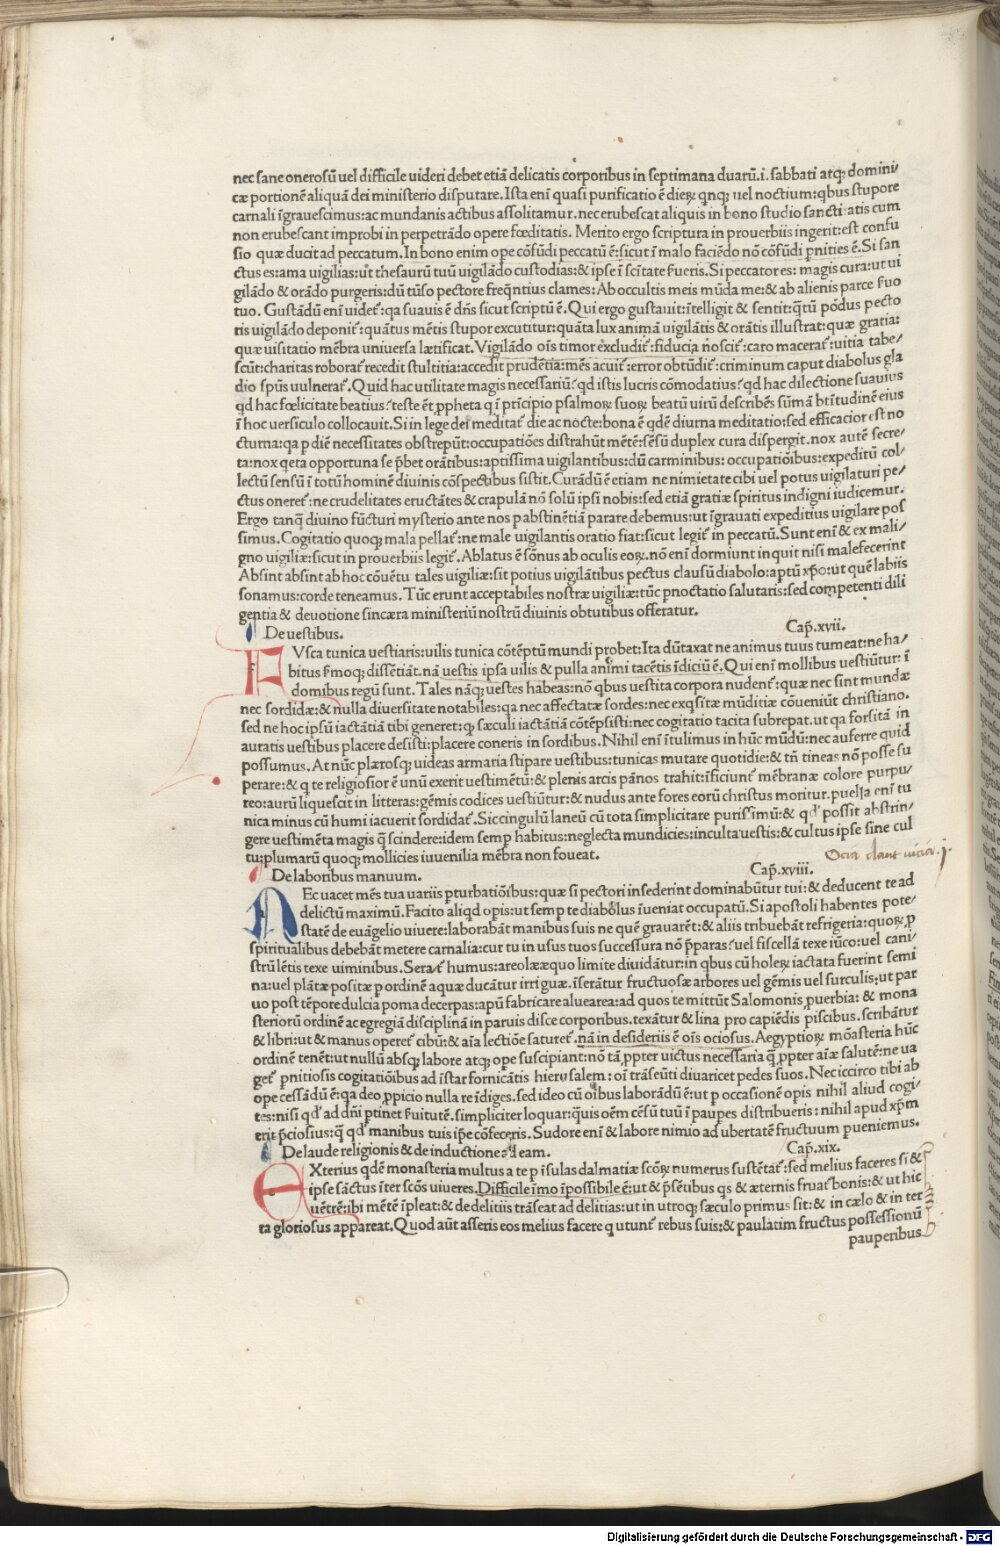 nec sane onerosū uel difficile uideri debet etiā delicatis corporibus in septimana duarū.i. sabbati atqꝫ domini/
cæ portionē aliquā dei ministerio disputare. Ista enī quasi purificatio ē dieꝝ qnqꝫ uel noctium:qbus stupore
carnali īgrauescimus:ac mundanis actibus assolitamur. nec erubescat aliquis in bono studio sanctitatis cum
non erubescant improbi in perpetrādo opere fœditatis. Merito ergo scriptura in prouerbiis ingerit:est confu
sio quæ ducit ad peccatum. In bono enim ope cōfūdi peccatū ē:sicut ī malo faciēdo nō cōfūdi pnities ē. Si san
ctus es:ama uigilias:ut thesaurū tuū uigilādo custodias:& ipse ī scītate fueris. Si peccator es: magis cura:ut ui
gilādo & orādo purgeris:dū tūso pectore freq̄ntius clames: Ab occultis meis mūda me:& ab alienis parce suo
tuo. Gustādū enī uidet᷑:qa suauis ē dn̄s sicut scriptū ē. Qui ergo gustauit:ītelligit & sentit:q̄tū pōdus pecto
ris uigilādo deponit᷑:quātus mētis stupor excutitur:quāta lux animā uigilātis & orātis illustrat:quæ gratia:
quæ uisitatio mēbra uniuersa lætificat. Vigilādo oīs timor excludit᷑:fiducia nōscit᷑:caro macerat᷑:uitia tabe/
scūt:charitas roborat᷑ recedit stultitia:accedit prudētia:mēs acuit᷑:error obtūdit᷑:criminum caput diabolus gla
dio spūs uulnerat᷑. Quid hac utilitate magis necessariū?qd istis lucris cōmodatius?qd hac dilectione suauius
qd hac fœlicitate beatius?teste ēt ꝓpheta q ī prīcipio psalmoꝝ suoꝝ beatū uirū describēs sūmā btītudinē eius
ī hoc uersiculo collocauit. Si in lege dei meditat᷑ die ac nocte:bona ē qdē diurna meditatio:sed efficacior est no
cturna:qa p diē necessitates obstrepūt:occupatiōes distrahūt mētē:sēsū duplex cura dispergit. nox autē secre/
ta:nox qeta opportuna se p̄bet orātibus:aptissima uigilantibus:dū carminibus: occupatiōibus:expeditū col/
lectū sensū ī totū hominē diuinis cōspectibus sistit. Curādū ē etiam ne nimietate cibi uel potus uigilaturi pe/
ctus oneret᷑:ne crudelitates eructātes & crapulā nō solū ipsi nobis:sed etiā gratiæ spiritus indigni iudicemur.
Ergo tanq̄ diuino fūcturi mysterio ante nos p abstinētiā parare debemus:ut īgrauati expeditius uigilare pos
simus. Cogitatio quoqꝫ mala pellat᷑:ne male uigilantis oratio fiat:sicut legit᷑ in peccatū. Sunt enī & ex mali/
gno uigiliæ:sicut in prouerbiis legit᷑. Ablatus ē sōnus ab oculis eoꝝ. nō enī dormiunt inquit nisi malefecerint
Absint absint ab hoc cōuētu tales uigiliæ:sit potius uigilātibus pectus clausū diabolo:aptū xp̄o:ut quē labiis
sonamus:corde teneamus. Tūc erunt acceptabiles nostræ uigiliæ:tūc pnoctatio salutaris:sed competenti dili
gentia & deuotione sincæra ministeriū nostrū diuinis obtutibus offeratur.
De uestibus. Cap̄.xvii.
FVsca tunica uestiaris:uilis tunica cōtēptū mundi probet:Ita dūtaxat ne animus tuus tumeat:ne ha/
bitus s̄moqꝫ dissētiāt. nā uestis ipsa uilis & pulla animi tacētis īdiciū ē. Qui enī mollibus uestiūtur: ī
domibus regū sunt. Tales nāqꝫ uestes habeas:nō qbus uestita corpora nudent᷑:quæ nec sint mundæ
nec sordidæ:& nulla diuersitate notabiles:qa nec affectatæ sordes:nec exqsitæ mūditiæ cōueniūt christiano.
sed ne hoc ipsū iactātiā tibi generet:ꝙ sæculi iactātiā cōtēpsisti:nec cogitatio tacita subrepat. ut qa forsitā in
auratis uestibus placere desisti:placere coneris in sordibus. Nihil enī ītulimus in hūc mūdū:nec auferre quid
possumus. At nūc plærosqꝫ uideas armaria stipare uestibus:tunicas mutare quotidie:& tn̄ tineas nō posse su
perare:& q te religiosior ē unū exerit uestimētū:& plenis arcis pānos trahit:īficiunt᷑ mēbranæ colore purpu/
reo:aurū liquescit in litteras:gēmis codices uestiūtur:& nudus ante fores eorū christus moritur. puella enī tu
nica minus cū humi iacuerit sordidat᷑. Si cingulū laneū cū tota simplicitate purissimū:& qd᷑ possit abstrin/
gere uestimēta magis q̄ scindere:idem semp habitus:neglecta mundicies:inculta uestis:& cultus ipse sine cul
tu:plumarū quoqꝫ mollicies iuuenilia mēbra non foueat.
Ocia dant uicia.
De laboribus manuum. Cap̄.xviii.
NEc uacet mēs tua uariis pturbatiōibus:quæ si pectori insederint dominabūtur tui:& deducent te ad
delictū maximū. Facito aliqd opis:ut semp te diabolus īueniat occupatū. Si apostoli habentes pote/
statē de euāgelio uiuere:laborabāt manibus suis ne quē grauarēt:& aliis tribuebāt refrigeria:quoꝝ ꝓ
spiritualibus debebāt metere carnalia:cur tu in usus tuos successura nō p̄paras?uel fiscellā texe iūco:uel cani/
strū lētis texe uiminibus. Serat᷑ humus:areolææquo limite diuidātur:in qbus cū holeꝝ iactata fuerint semi
na:uel plātæ positæ p ordinē aquæ ducātur irriguæ. īserātur fructuosæ arbores uel gēmis uel surculis:ut par
uo post tēpore dulcia poma decerpas:apū fabricare aluearea:ad quos te mittūt Salomonis ꝓuerbia: & mona
steriorū ordinē ac egregiā disciplinā in paruis disce corporibus. texātur & lina pro capiēdis piscibus. scribātur
& libri:ut & manus operet᷑ cibū:& aīa lectiōe saturet᷑. nā in desideriis ē oīs ociosus. Aegyptioꝝ mōasteria hūc
ordinē tenēt:ut nullū absqꝫ labore atqꝫ ope suscipiant:nō tā ꝓpter uictus necessaria q̄ ꝓpter aīæ salutē:ne ua
get᷑ pnitiosis cogitatiōibus ad īstar fornicātis hierusalem: oī trāseūti diuaricet pedes suos. Nec iccirco tibi ab
ope cessādū ē:qa deo ꝓpicio nulla re īdiges. sed ideo cū oībus laborādū ē:ut p occasionē opis nihil aliud cogi/
tes:nisi qd᷑ ad dn̄i ptinet s̄uitutē. simpliciter loquar:quis oēm cēsū tuū ī paupes distribueris: nihil apud xp̄m
erit p̄ciosius:q̄ qd᷑ manibus tuis ip̄e cōfeceris. Sudore enī & labore nimio ad ubertatē fructuum pueniemus.
De laude religionis & de inductione ad eam. Cap̄.xix.
EXterius qdē monasteria multus a te p īsulas dalmatiæ scōꝝ numerus sustētat᷑:sed melius faceres si &
ipse sāctus īter scōs uiueres. Difficile īmo īpossibile ē:ut & p̄sētibus qs & æternis fruat᷑ bonis:& ut hic
uētrē:ibi mētē īpleat:& de delitiis trāseat ad delitias:ut in utroqꝫ sæculo primus sit:& in cælo & in ter
ra gloriosus appareat. Quod aūt asseris eos melius facere q utunt᷑ rebus suis:& paulatim fructus possessionū
pauperibus
Digitalisierung gefördert durch die Deutsche Forschungsgemeinschaft - DFG